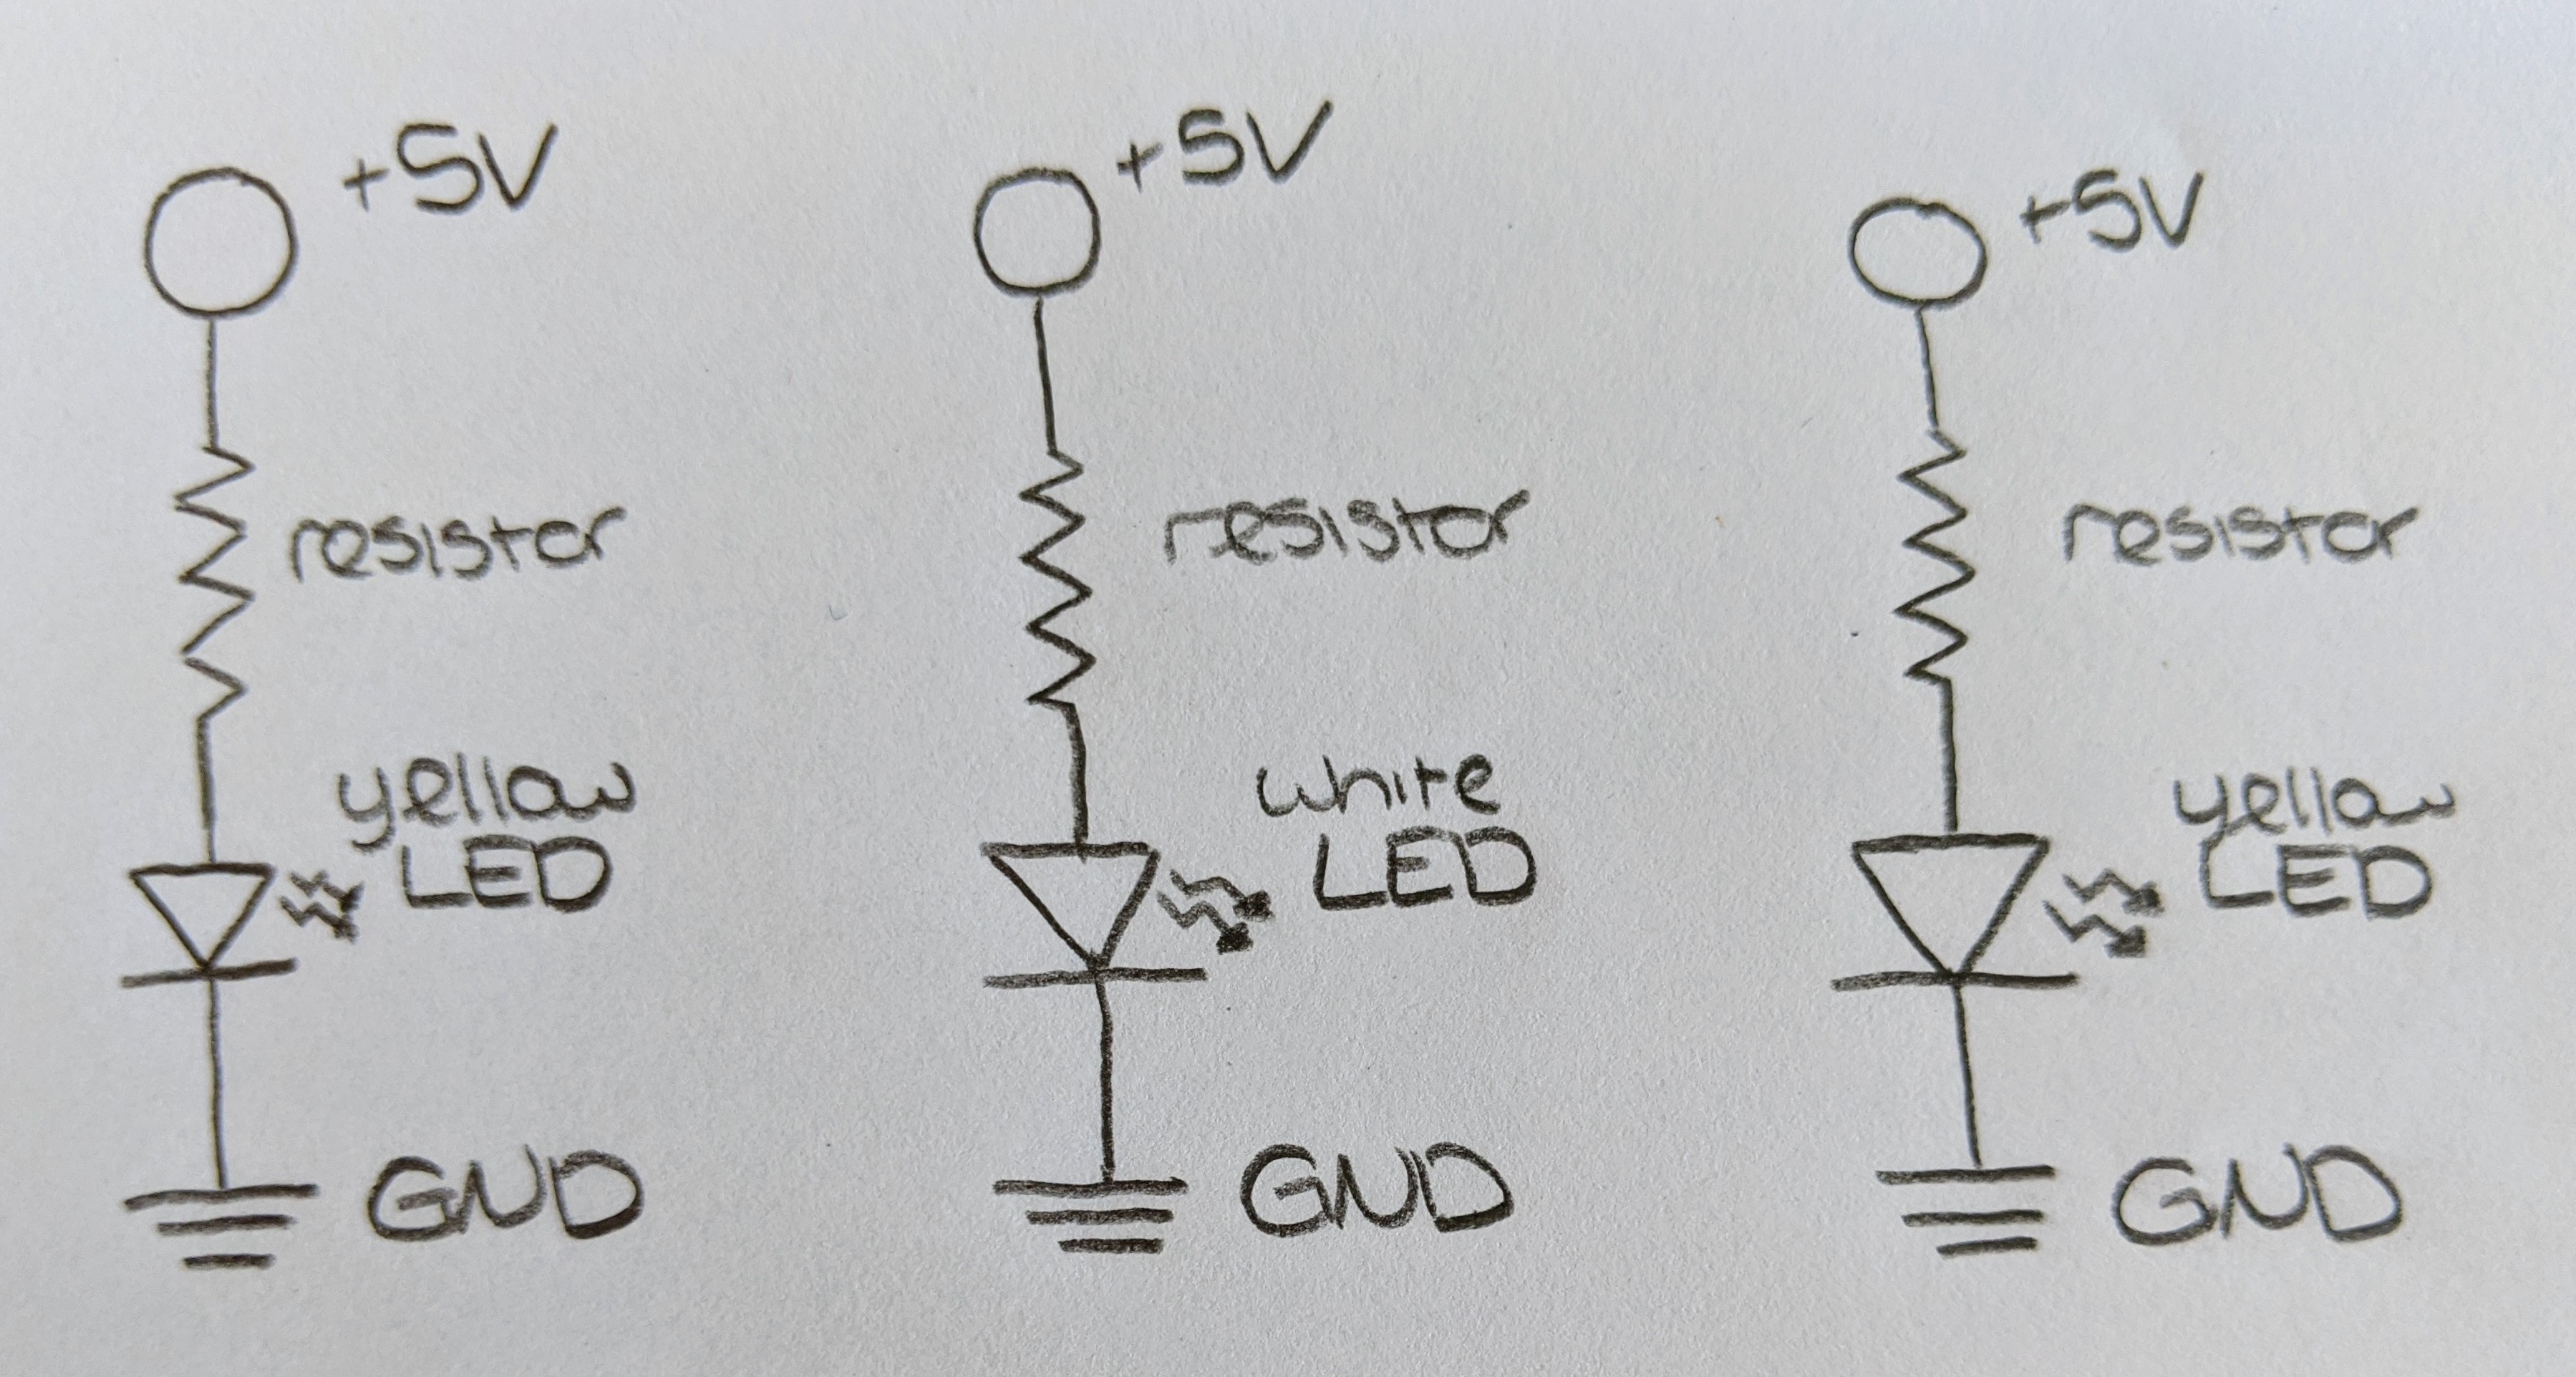 +5V
resistor
yellow
LED
GND
+5V
resistor
white
LED
GND
+5V
resistor
yellow
LED
GND